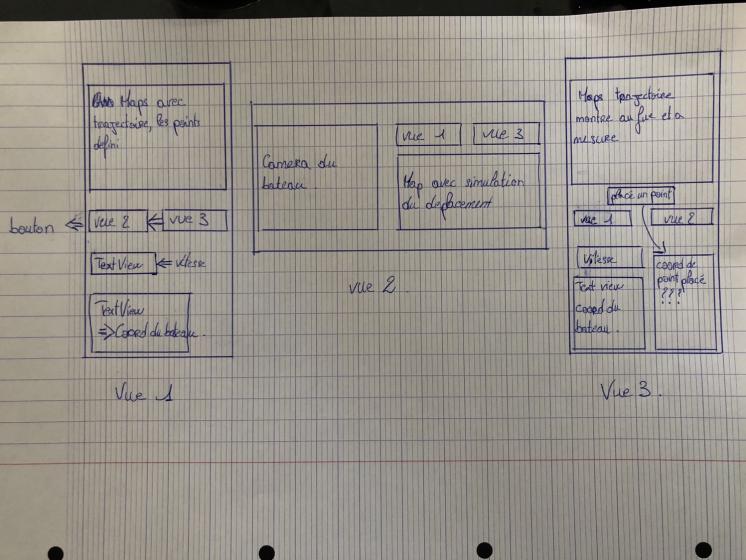 Maps avec
trajectoire, les points
défini
bouton
vue 2
vue 3
TextView
vitesse
TextView
=> Coord du bateau.
Vue 1
Camera du
bateau
vue 1
vue 3
Map avec simulation
du deplacement
vue 2
Maps trajectoire
montre au fur et a
mesure
placé un point
vue 1
vue 2
Vitesse
Text view
coord du
bateau
coord de
point placé
???
Vue 3.